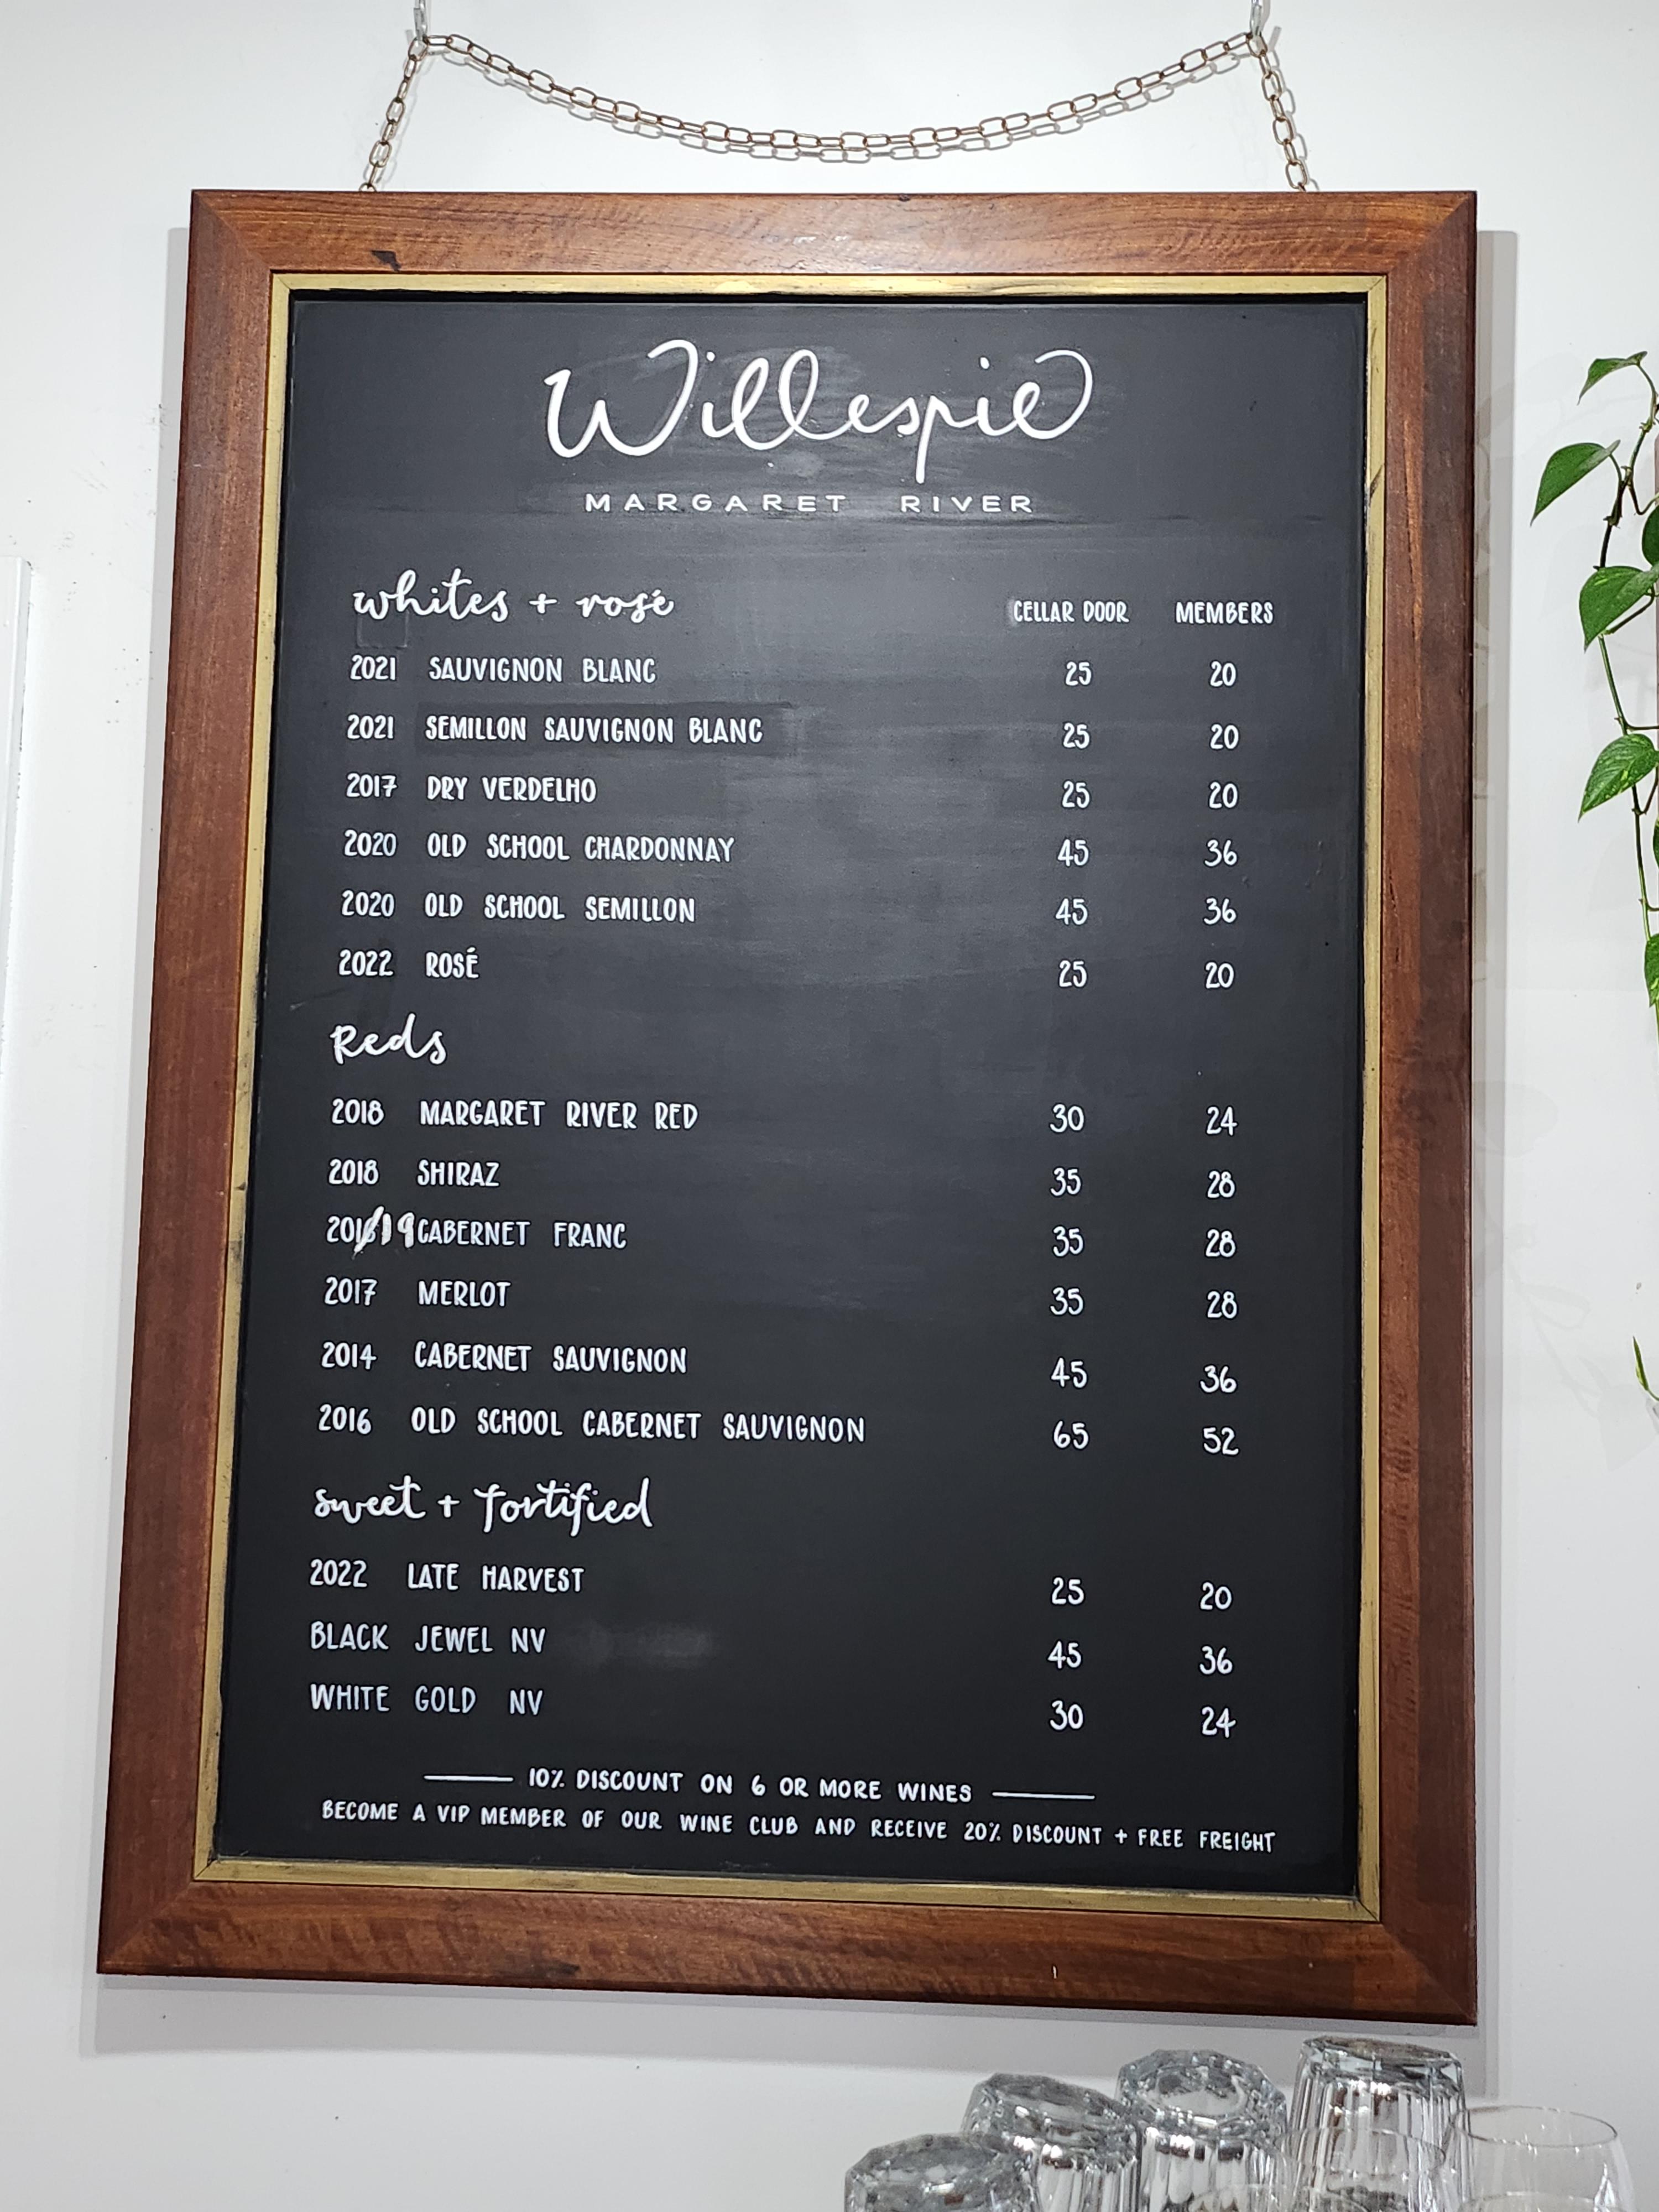 Willespie
MARGARET RIVER
whites + rosé CELLAR DOOR MEMBERS
2021 SAUVIGNON BLANC 25 20
2021 SEMILLON SAUVIGNON BLANC 25 20
2017 DRY VERDELHO 25 20
2020 OLD SCHOOL CHARDONNAY 45 36
2020 OLD SCHOOL SEMILLON 45 36
2022 ROSÉ 25 20
Reds
2018 MARGARET RIVER RED 30 24
2018 SHIRAZ 35 28
2018/19 CABERNET FRANC 35 28
2017 MERLOT 35 28
2014 CABERNET SAUVIGNON 45 36
2016 OLD SCHOOL CABERNET SAUVIGNON 65 52
sweet + fortified
2022 LATE HARVEST 25 20
BLACK JEWEL NV 45 36
WHITE GOLD NV 30 24
10% DISCOUNT ON 6 OR MORE WINES
BECOME A VIP MEMBER OF OUR WINE CLUB AND RECEIVE 20% DISCOUNT + FREE FREIGHT